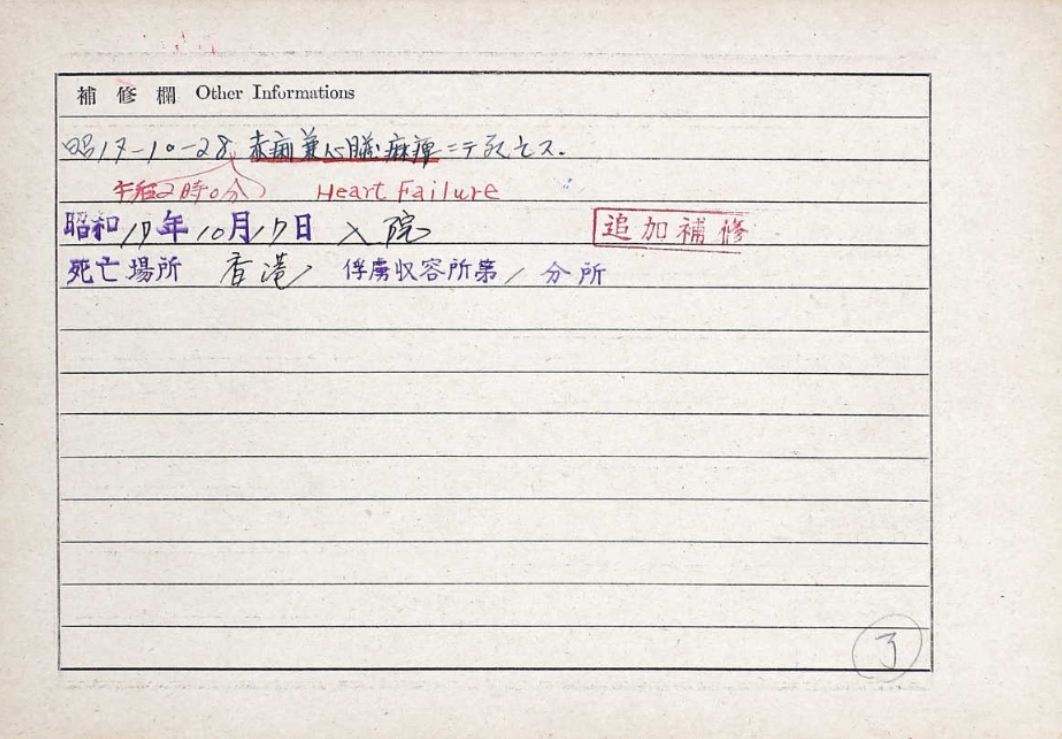 補修欄 Other Informations
昭17-10-28 赤痢兼心臓麻痺ニテ死亡ス.
午后2時0分 Heart Failure
昭和17年10月17日 入院 追加補修
死亡場所 香港 俘虜収容所第1分所
了